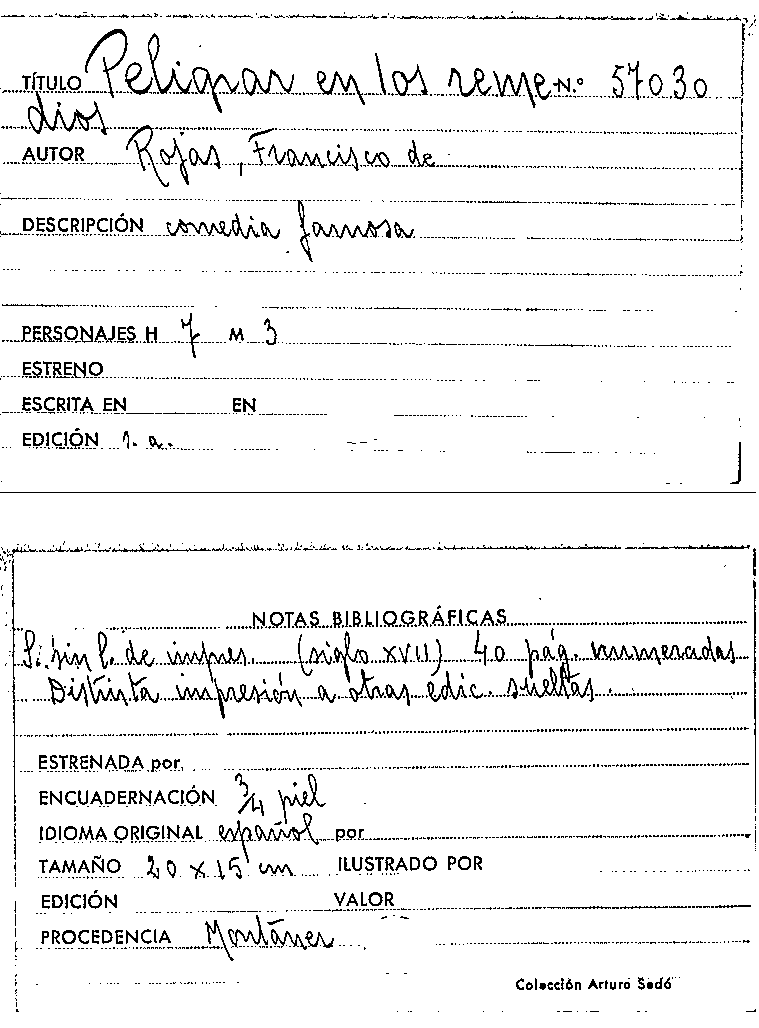 TÍTULO Peligrar en los reme N.º 57030
dios
AUTOR Rojas, Francisco de
DESCRIPCIÓN comedia famosa
PERSONAJES H 7 M 3
ESTRENO
ESCRITA EN EN
EDICIÓN 1. a.
NOTAS BIBLIOGRÁFICAS
S. sin l. de impres. (siglo XVII) 40 pág. numeradas
Distinta impresión a otras edic. sueltas.
ESTRENADA por
ENCUADERNACIÓN 3/4 piel
IDIOMA ORIGINAL español por
TAMAÑO 20 x 15 cm ILUSTRADO POR
EDICIÓN VALOR
PROCEDENCIA Montaner
Colección Arturo Sedó